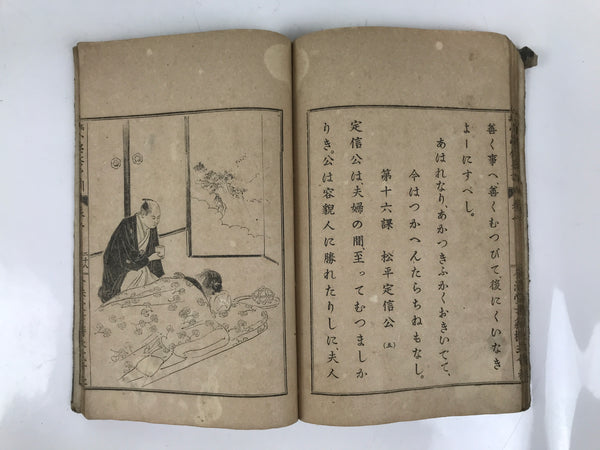 善く事へ善くむつびて、後にくいなき
よーにすべし。
あはれなり、あかつきふかくおきいでて、
今はつかへんたらちねもなし。
第十六課 松平定信公 (五)
定信公は、夫婦の間、至ってむつましか
りき。公は容貌人に勝れたりしに、夫人